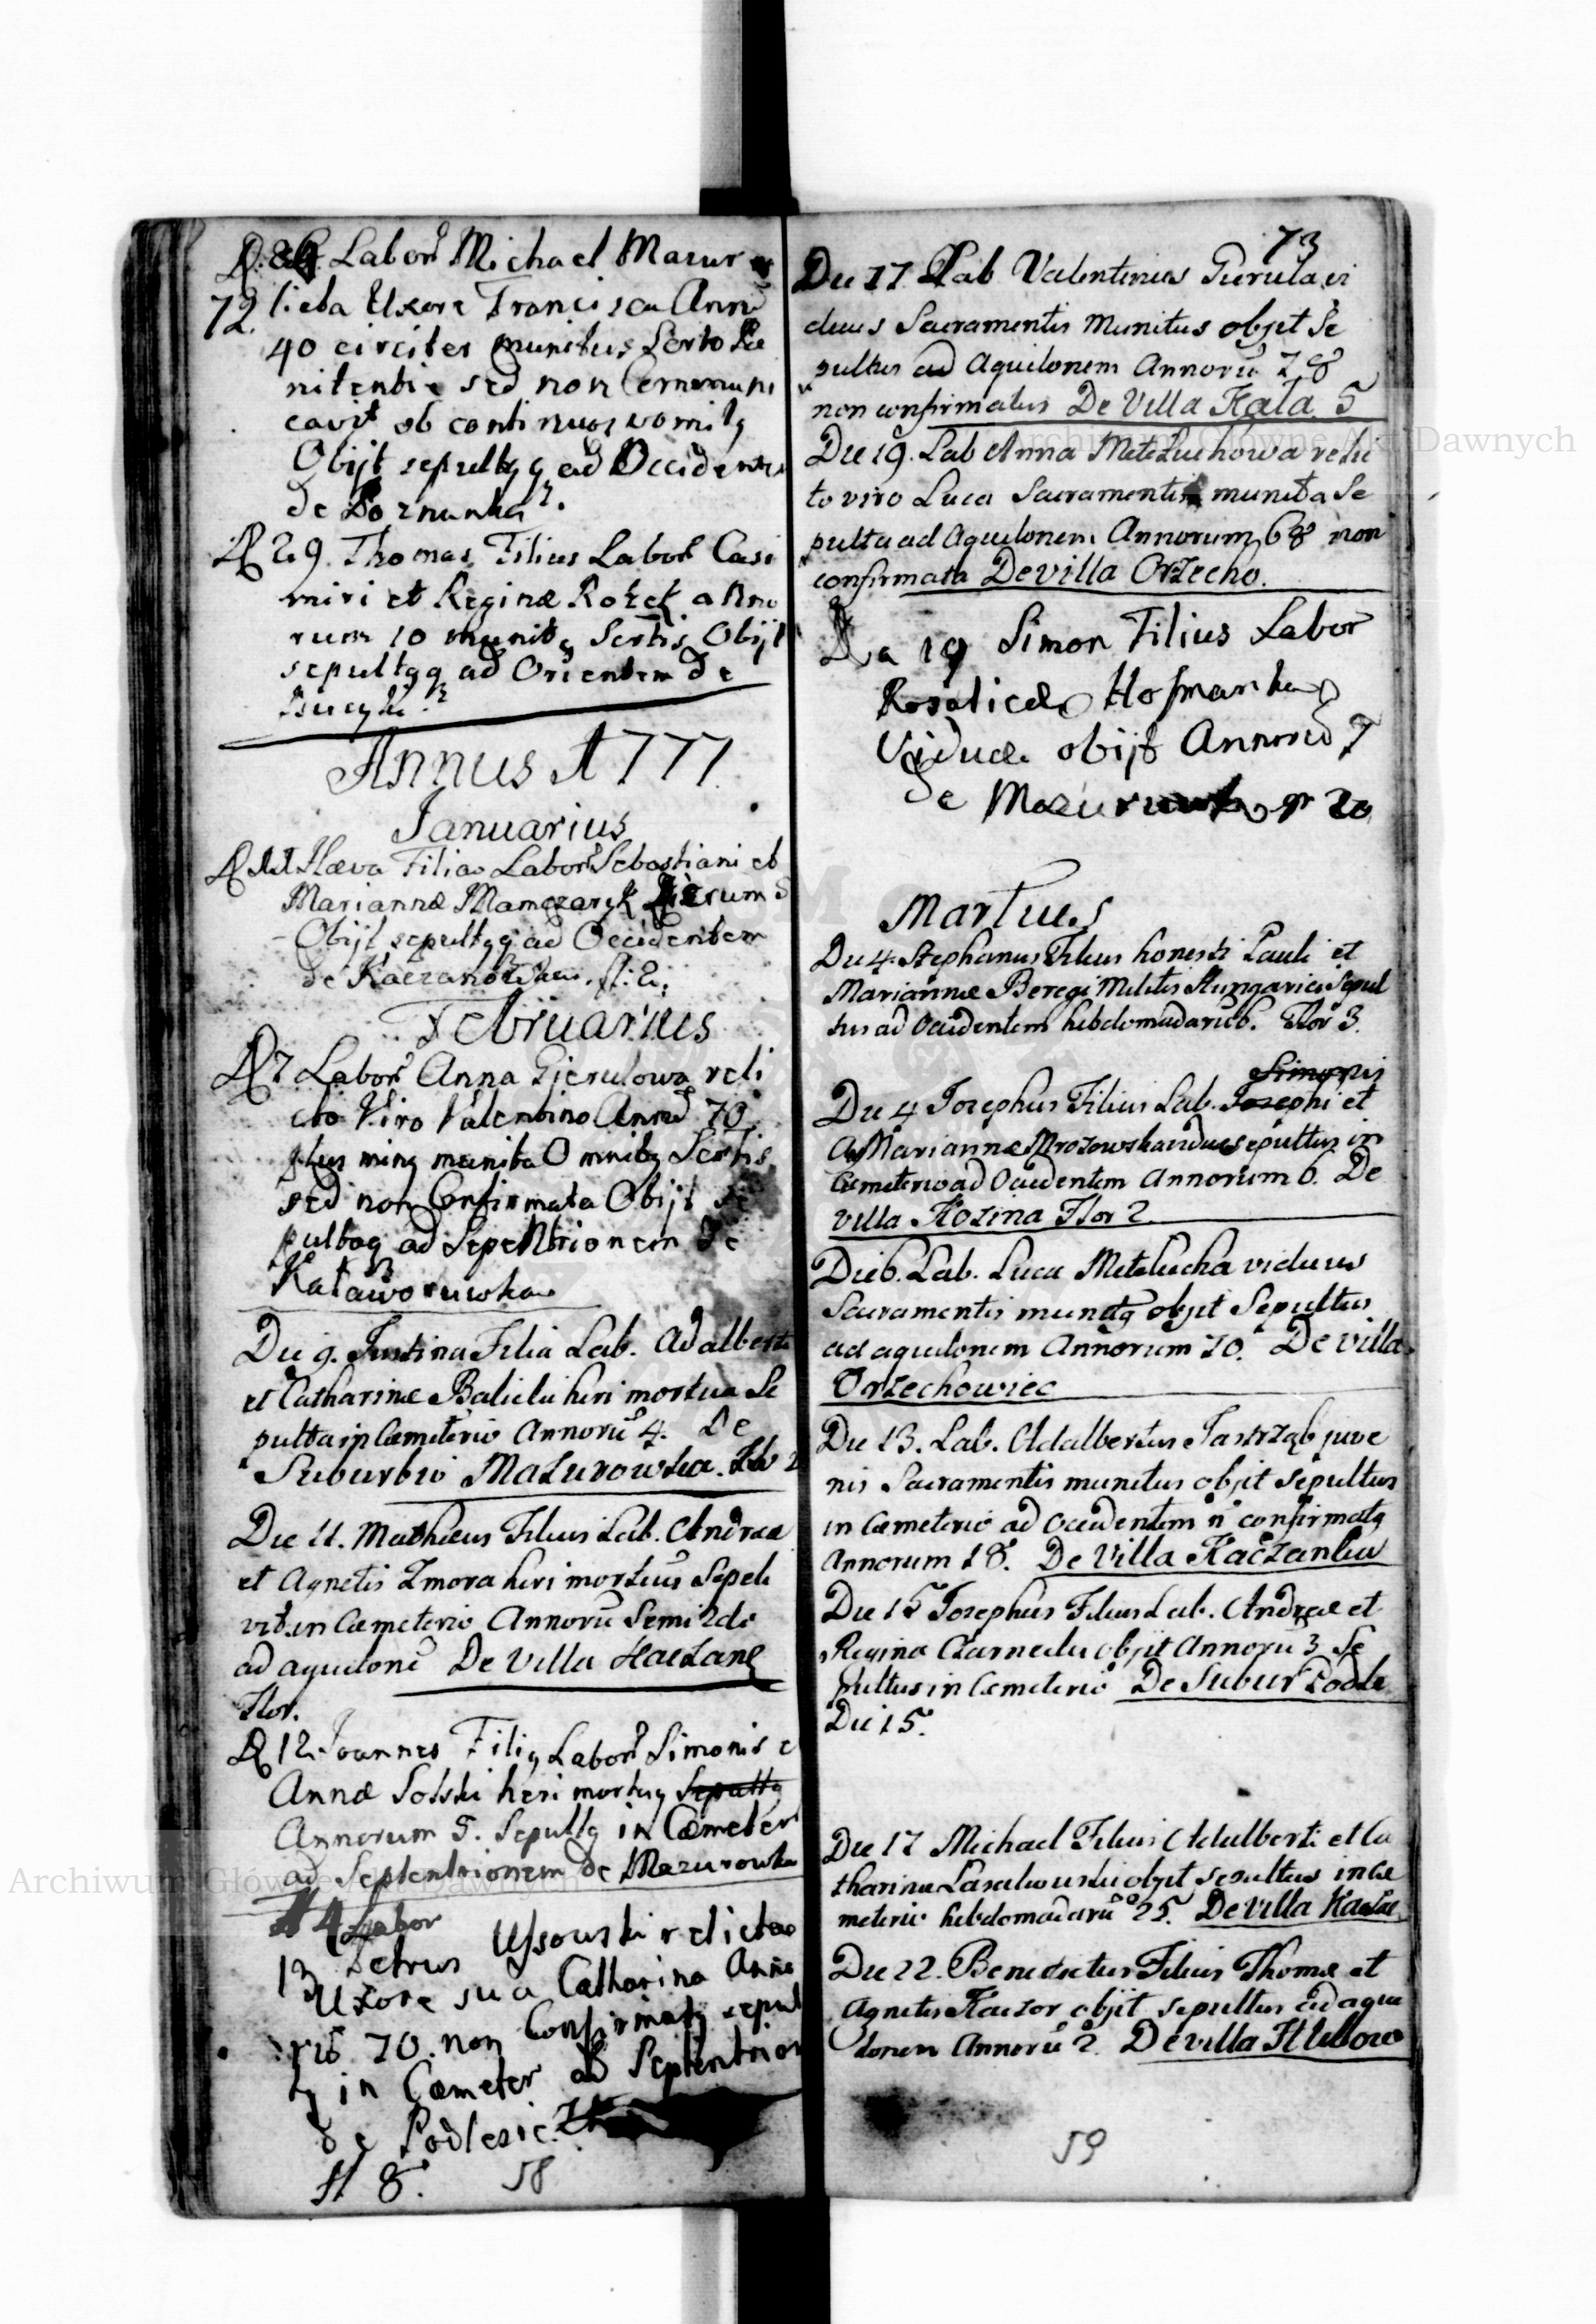 Labor Michael Mazur
72. licta Uxore Francisca Annor
40 circiter munitus Scrto Pæ
nitentiæ sed non Commmuni
cavit ob continuos vomitq
Obijt sepultqq ad Occidente
de Poznanka
D 29. Thomas Filius Labor Casi
miri et Reginæ Rożek anno
rum 10 munitq Scrtis Obijt
sepultqq ad Orientem de
Annus 1777
Januarius
Filia Labor Sebastiani et
Mariannæ Mamczaryk
Obijt sepultqq ad Occidentem
de
Februarius
D 7 Labor Anna Gierulowa reli
cto Viro Valentino Annor 70
plus minq munita Omnibq Scrtis
sed non Confirmata Obijt se
pultaq ad Septentrionem de
Kaławoruwka
Die 9. Justina Filia Lab. Adalberti
et Catharinæ Balicki heri mortua Se
pulta in Cœmeterio Annorū 4. De
Suburbio Mazurowka.
Die 11. Mathæus Filius Lab. Andreæ
et Agnetis Zmora heri mortuus Sepeli
vit in Cœmeterio Annorū Semi 2di
ad aquilonē De Villa Kaczan
Flor.
D 12. Joannes Filiq Labor Simonis e
Annæ Solski heri mortuq Sepultq
Annorum 5. Sepultq in Cœmeter
ad Septentrionem de Mazurowka
Labor
13 Petrus Ussowski relicta
Uxore sua Catharina Anno
rū 70. non Confirmatq sepul
tq in Cœmeter ad Septentrion
de Podlesie.
fl 8.
58
73
Die 17 Lab Valentinus Gierula vi
duus Sacramentis munitus objit Se
pultus ad Aquilonem Annorū 78
non confirmatus De Villa Kała. 5
Die 19. Lab Anna Meteluchowa relic
to viro Luca Sacramentis munita Se
pulta ad Aquilonem Annorum 68 non
confirmata De villa Orzecho.
Da 19 Simon Filius Labor
Rosaliæ Hofmanka
Viduæ obijt Annorū 7
de Mazuruwka gr 20
Martius
Die 4. Stephanus Filius honesti Pauli et
Mariannæ Beregi Militis Hungarici Sepul
tus ad Occidentem hebdomadarū 6. Flor 3.
Simonis
Die 4 Josephus Filius Lab. Josephi et
Mariannæ Mrozowska viduæ sepultus in
Cœmeterio ad Occidentem Annorum 6. De
villa Kozina Flor 2
Die 6. Lab. Luca Metelucha viduus
Sacramentis munitq objit Sepultus
ad aquilonem Annorum 70. De villa
Orzechowiec
Die 13. Lab. Adalbertus Jastrząb juve
nis Sacramentis munitus objit sepultus
in Cœmeterio ad Occidentem n confirmatq
Annorum 18. De Villa Kaczanka
Die 15 Josephus Filius Lab. Andreæ et
Regina Czarnecki objit Annorū 3 Se
pultus in Cœmeterio De Subur Podle
Die 15.
Die 17 Michael Filius Adalberti et Ca
tharinæ objit sepultus in Cœ
meterio hebdomadarū 25. De Villa
Die 22. Benedictus Filius Thomæ et
Agnetis Kaczor objit sepultus ad aqui
lonem Annorū 2. De villa
59
Archiwum Główne Akt Dawnych
Archiwum Główne Akt Dawnych